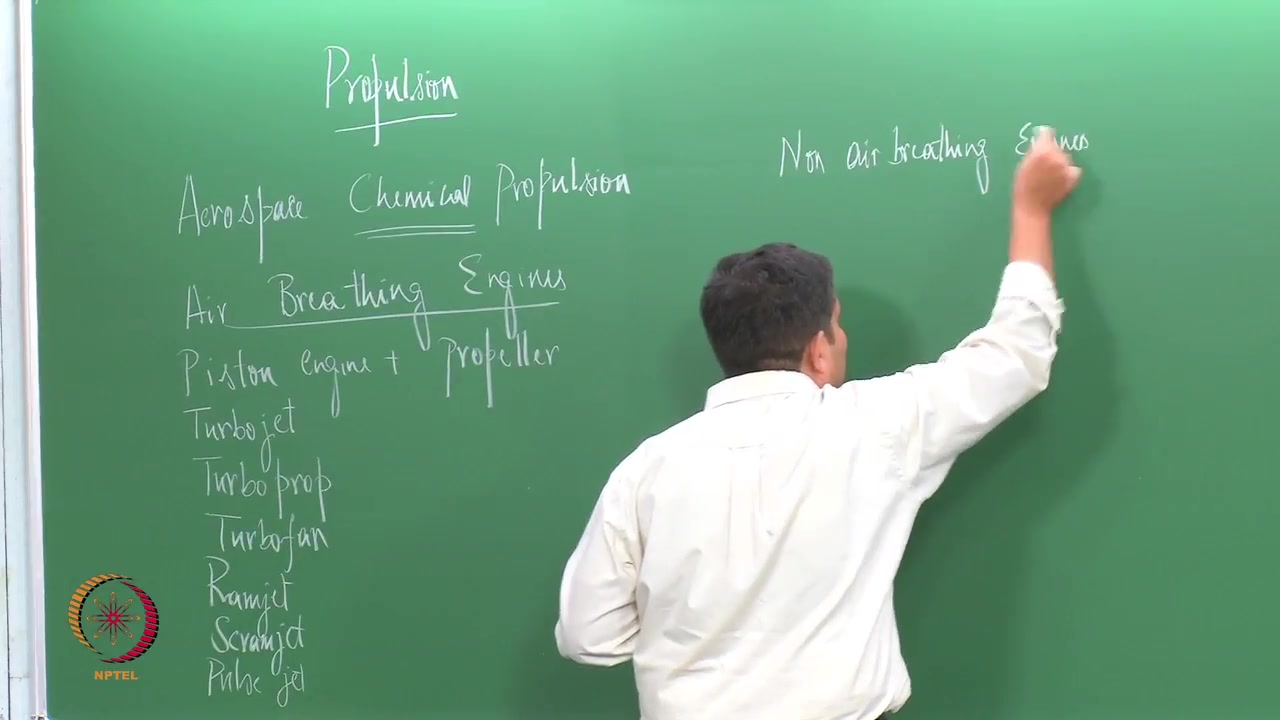 Propulsion
Aerospace Chemical Propulsion
Air Breathing Engines
Piston engine + propeller
Turbojet
Turboprop
Turbofan
Ramjet
Scramjet
Pulse jet
Non air breathing
NPTEL